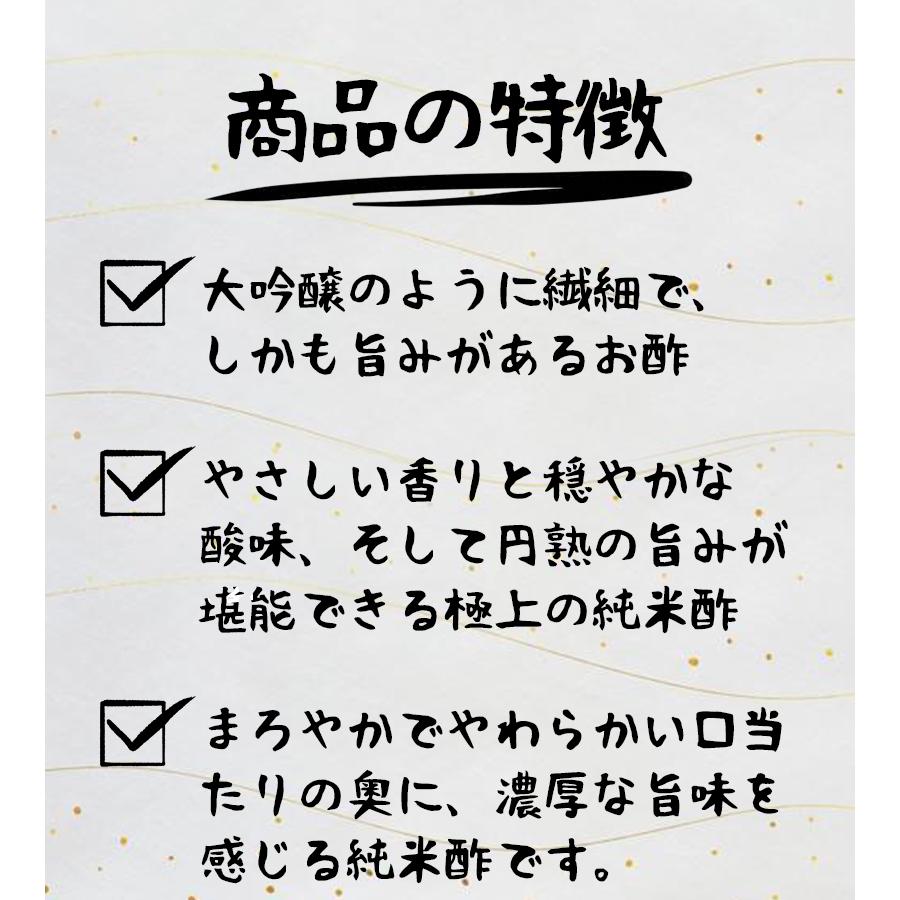 商品の特徴
大吟醸のように繊細で、
しかも旨みがあるお酢
やさしい香りと穏やかな
酸味、そして円熟の旨みが
堪能できる極上の純米酢
まろやかでやわらかい口当
たりの奥に、濃厚な旨味を
感じる純米酢です。